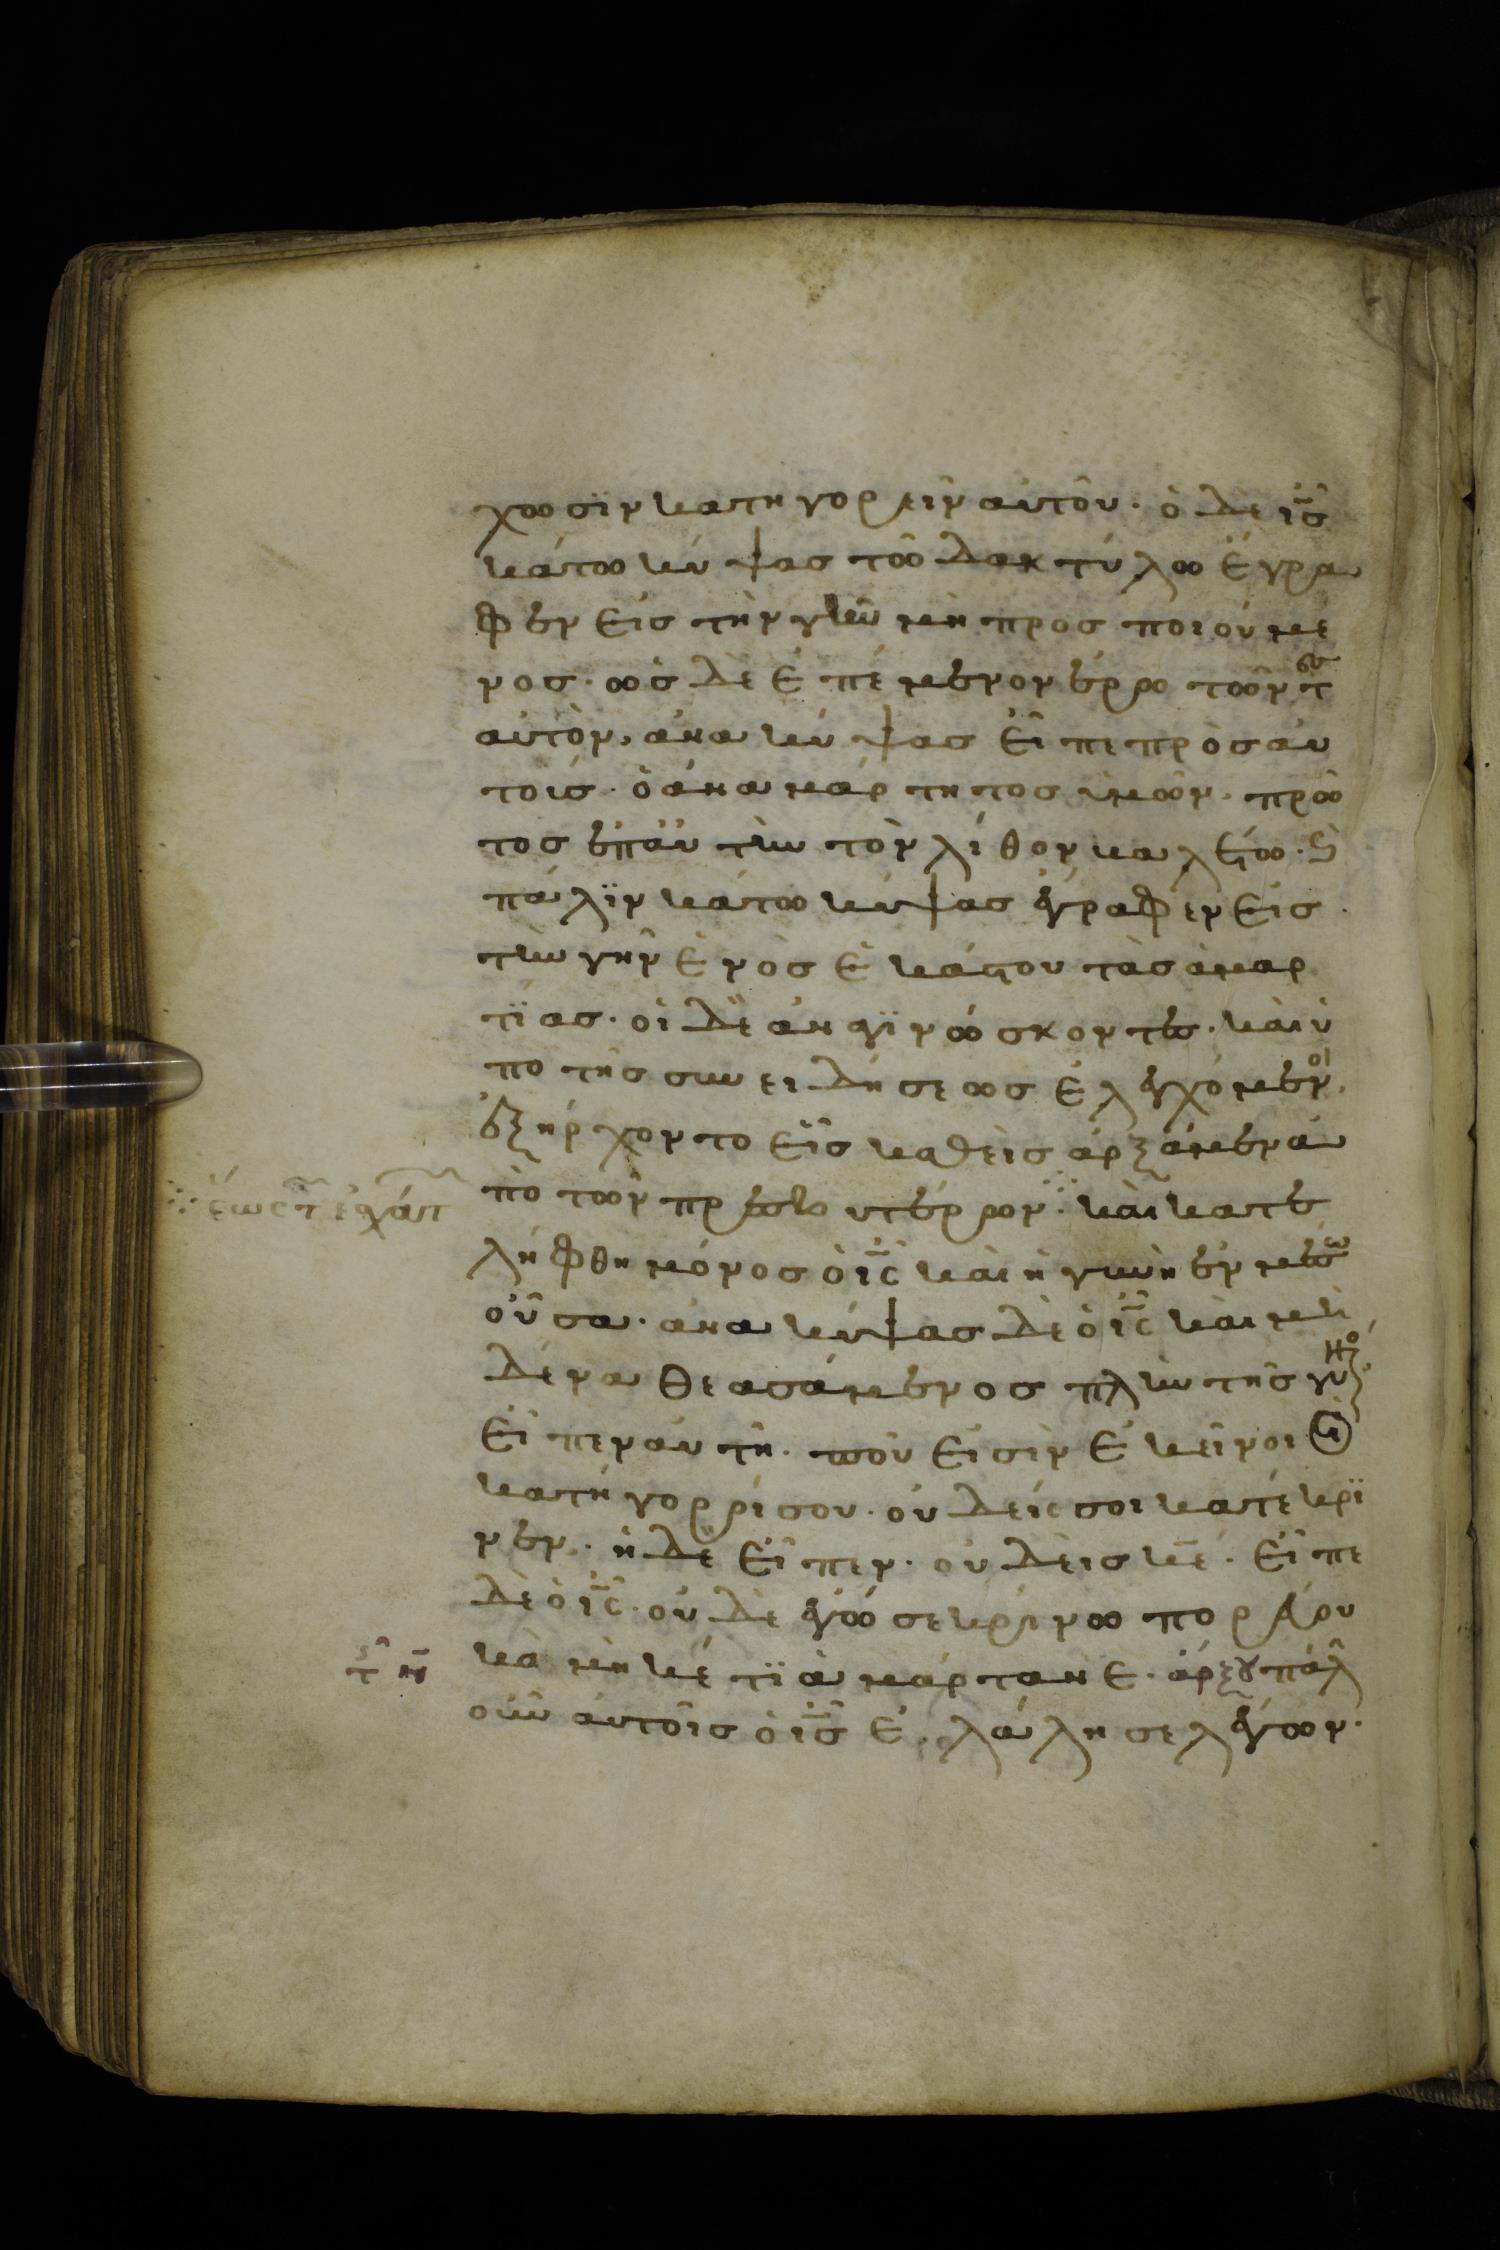 χωσϊν κατηγορεῖν αὐτοῦ· ὁ δὲ ι̅ς̅
κάτω κύψας τῶ δακτύλω ἔγρα
φεν εἰς τὴν γῆν μὴ προσποιούμε
νος· ὡς δὲ ἐπέμενον ἐρωτῶντ(ες)
αὐτὸν, ἀνακύψας εἶπε πρὸς αὐ
τοίς· ὁ ἀναμάρτητος ὑμῶν, πρῶ
τος ἐπ' αὐτὴν τὸν λίθον βαλέτω· Ϗ
πάλϊν κάτω κύψας ἔγραφεν εἰς
τὴν γῆν ἑνὸς ἑκάστου τὰς ἁμαρ
τϊας· οἱ δὲ ἀναγϊνώσκοντες· καὶ ὑ
πὸ τῆς συνειδήσεως ἐλεγχόμενοι,
ἐξήρχοντο εἷς καθεὶς ἀρξάμενα
πὸ τῶν πρεσβυτέρων· καὶ κατε
∴ ἕως τ̅ ἐσχάτ
λήφθη μόνος ὁ ι̅ς̅ καὶ ἡ γυνὴ ἐν μέσω
οὖσα· ἀνακύψας δὲ ὁ ι̅ς̅ καὶ μη
δένα θεασάμενος πλὴν τῆς γυναικός,
εἶπεν αὐτῆ· ποῦ εἰσὶν ἐκεῖνοι οἱ
κατήγοροί σου· οὐδείς σοι κατέκρϊ
νεν· ἡ δὲ εἶπεν· οὐδεὶς κ̅ε̅· εἶπε
δὲ ὁ ι̅ς̅· οὐδὲ ἐγώ σε κρίνω πορεύου
καὶ μηκέτϊ ἁμάρτανε· ἀρξου πάλ
τ̅ η̅
οὖν αὐτοῖς ὁ ι̅ς̅ ἐλάλησε λέγων·